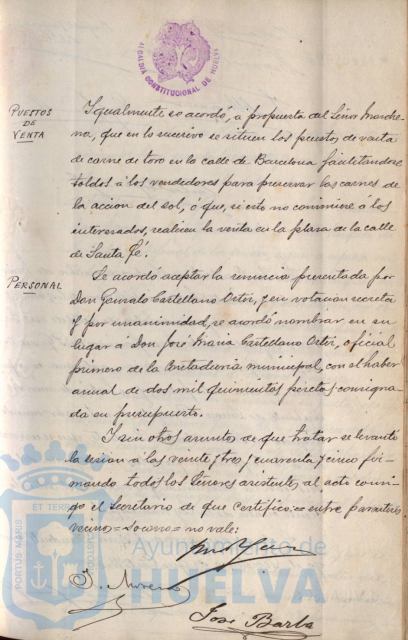 ALCALDIA CONSTITUCIONAL DE HUELVA
PUESTOS
DE
VENTA
Igualmente se acordó, á propuesta del Señor Marche-
na, que en lo sucesivo se sitúen los puestos de venta
de carne de toro en la calle de Barcelona facilitandose
toldos á los vendedores para preservar las carnes de
la accion del sol, ó que, si esto no conviniere á los
interesados, realicen la venta en la plaza de la calle
de Santa Fé.
PERSONAL
Se acordó aceptar la renuncia presentada por
Don Gonzalo Castellano Ortiz, y en votacion secreta
y por unanimidad, se acordó nombrar en su
lugar á Don José Maria Castellano Ortiz, oficial
primero de la Contaduria municipal, con el haber
anual de dos mil quinientas pesetas consigna-
da en presupuesto.
Y sin otros asuntos de que tratar se levantó
la sesion á las veinte y tres y cuarenta y cinco fir-
mando todos los Señores asistentes al acto conmi-
go el Secretario de que certifico.= entre parentesis
vecino = = no vale:
J. Moreno
José Barba
PORTUS MARIS ET TERRAE CUSTODIA
Ayuntamiento de
HUELVA